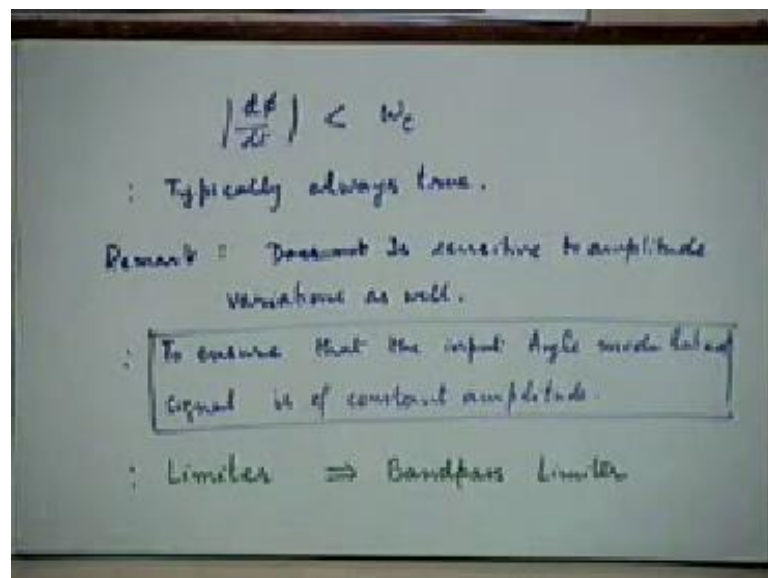 |dφ/dt| < ωc
: Typically always true.
Remark : Does not Is sensitive to amplitude
variations as well.
: To ensure that the input Angle modulated
signal is of constant amplitude.
: Limiter ⇒ Bandpass Limiter